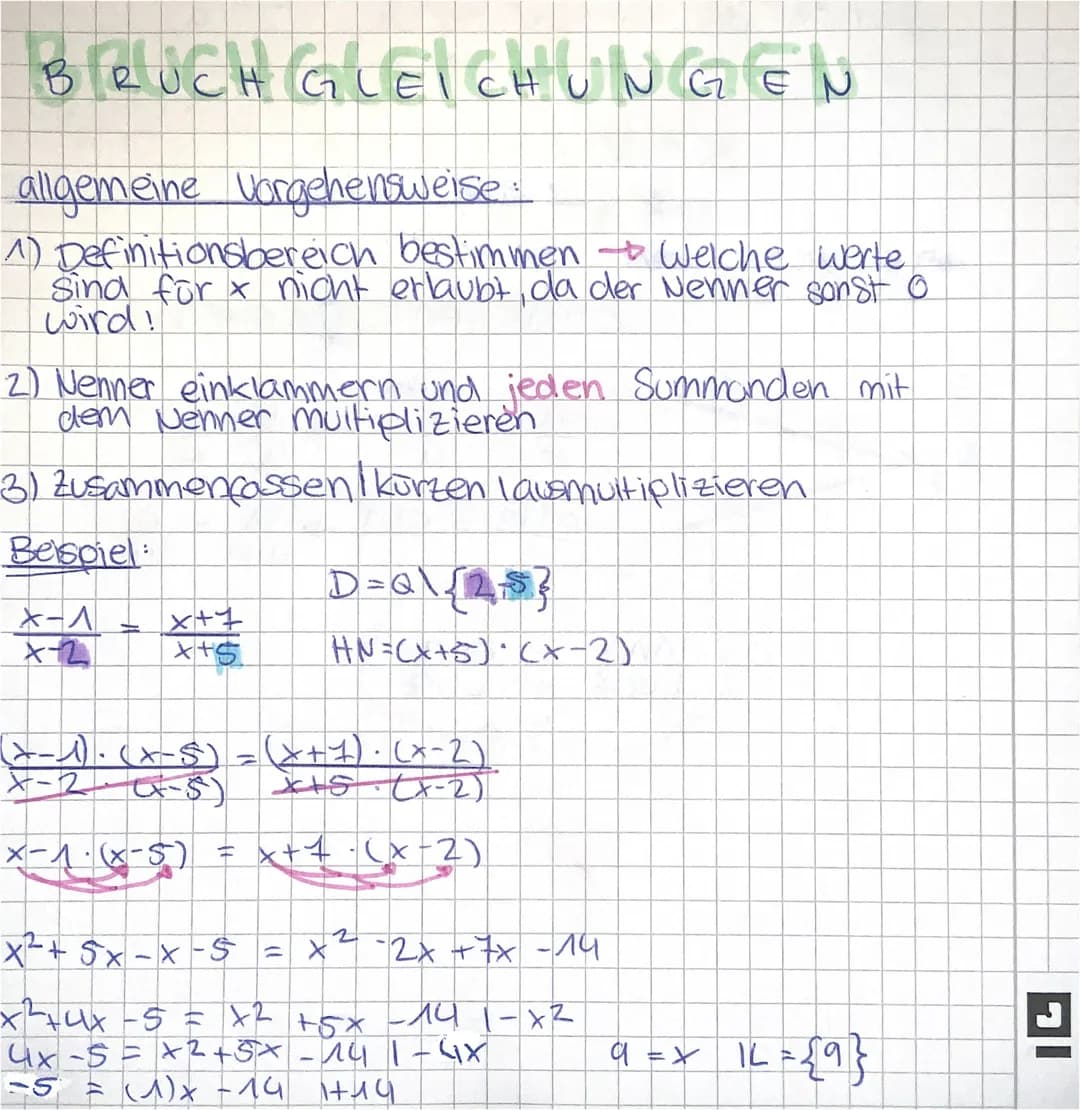 BRUCHGLEICHUNGEN
allgemeine Vorgehensweise:
1) Definitionsbereich bestimmen → Welche Werte
sind für x nicht erlaubt, da der Nenner sonst 0
wird!
2) Nenner einklammern und jeden Summanden mit
dem Nenner multiplizieren
3) Zusammenfassen/kürzen/ausmultiplizieren
Beispiel:
D=Q\{2,-5}
x-1/x-2 = x+7/x+5
HN=(x+5)·(x-2)
(x-1)·(x-5)/x-2·(x-5) = (x+7)·(x-2)/x+5·(x-2)
x-1·(x-5) = x+7·(x-2)
x²+5x-x-5 = x²-2x+7x-14
x²+4x-5 = x2+5x-14 |-x2
4x-5=x2+5x-14 |-4x
9=x IL={9}
-5 = (1)x-14 |+14